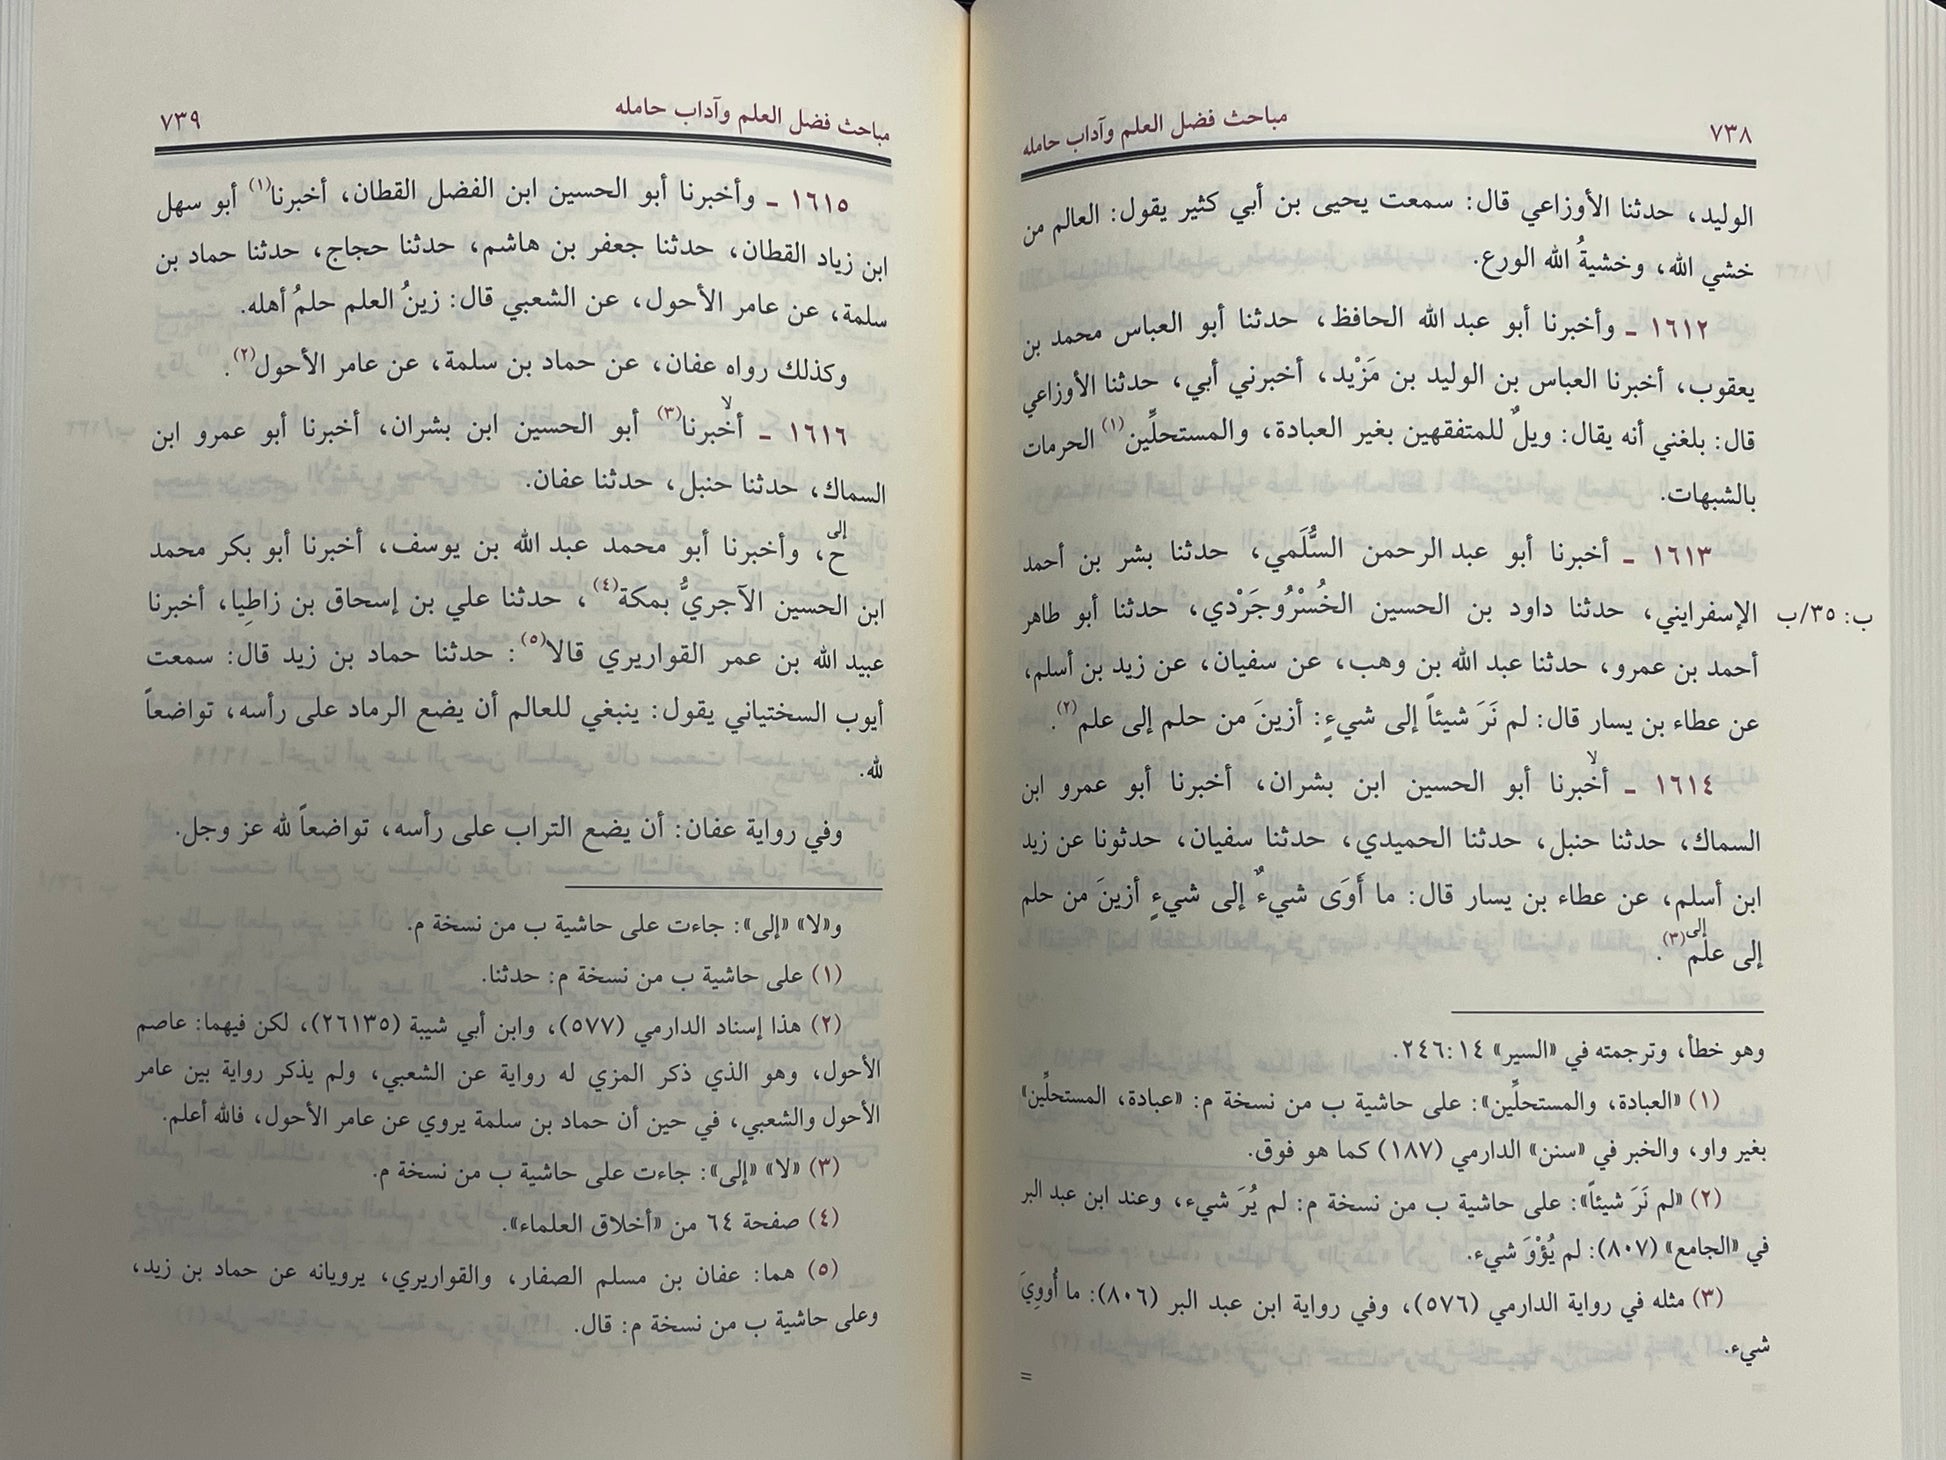 ٧٣٨
مباحث فضل العلم وآداب حامله
الوليد، حدثنا الأوزاعي قال: سمعت يحيى بن أبي كثير يقول: العالم من
خشي الله، وخشيةُ الله الورع.
١٦١٢ ـ وأخبرنا أبو عبد الله الحافظ، حدثنا أبو العباس محمد بن
يعقوب، أخبرنا العباس بن الوليد بن مَزْيد، أخبرني أبي، حدثنا الأوزاعي
قال: بلغني أنه يقال: ويلٌ للمتفقهين بغير العبادة، والمستحلِّين(١) الحرمات
بالشبهات.
١٦١٣ ـ أخبرنا أبو عبد الرحمن السُّلَمي، حدثنا بشر بن أحمد
ب: ٣٥/ب
الإسفرايني، حدثنا داود بن الحسين الخُسْرُوجَرْدي، حدثنا أبو طاهر
أحمد بن عمرو، حدثنا عبد الله بن وهب، عن سفيان، عن زيد بن أسلم،
عن عطاء بن يسار قال: لم نَرَ شيئاً إلى شيءٍ: أزينَ من حلم إلى علم(٢).
١٦١٤ ـ لا أخبرنا أبو الحسين ابن بشران، أخبرنا أبو عمرو ابن
السماك، حدثنا حنبل، حدثنا الحميدي، حدثنا سفيان، حدثونا عن زيد
ابن أسلم، عن عطاء بن يسار قال: ما أَوَى شيءٌ إلى شيءٍ أزينَ من حلم
إلى علم إلى(٣).
وهو خطأ، وترجمته في «السير» ١٤: ٢٤٦.
(١) «العبادة، والمستحلِّين»: على حاشية ب من نسخة م: «عبادة، المستحلِّين»
بغير واو، والخبر في «سنن» الدارمي (١٨٧) كما هو فوق.
(٢) «لم نَرَ شيئاً»: على حاشية ب من نسخة م: لم يُرَ شيء، وعند ابن عبد البر
في «الجامع» (٨٠٧): لم يُؤْوَ شيء.
(٣) مثله في رواية الدارمي (٥٧٦)، وفي رواية ابن عبد البر (٨٠٦): ما أُووِيَ
شيء.
=
مباحث فضل العلم وآداب حامله
٧٣٩
١٦١٥ ـ وأخبرنا أبو الحسين ابن الفضل القطان، أخبرنا(١) أبو سهل
ابن زياد القطان، حدثنا جعفر بن هاشم، حدثنا حجاج، حدثنا حماد بن
سلمة، عن عامر الأحول، عن الشعبي قال: زينُ العلم حلمُ أهله.
وكذلك رواه عفان، عن حماد بن سلمة، عن عامر الأحول(٢).
١٦١٦ ـ لا أخبرنا(٣) أبو الحسين ابن بشران، أخبرنا أبو عمرو ابن
السماك، حدثنا حنبل، حدثنا عفان.
إلى
ح، وأخبرنا أبو محمد عبد الله بن يوسف، أخبرنا أبو بكر محمد
ابن الحسين الآجريُّ بمكة(٤)، حدثنا علي بن إسحاق بن زاطِيا، أخبرنا
عبيد الله بن عمر القواريري قالا(٥): حدثنا حماد بن زيد قال: سمعت
أيوب السختياني يقول: ينبغي للعالم أن يضع الرماد على رأسه، تواضعاً
لله.
وفي رواية عفان: أن يضع التراب على رأسه، تواضعاً لله عز وجل.
و«لا» «إلى»: جاءت على حاشية ب من نسخة م.
(١) على حاشية ب من نسخة م: حدثنا.
(٢) هذا إسناد الدارمي (٥٧٧)، وابن أبي شيبة (٢٦١٣٥)، لكن فيهما: عاصم
الأحول، وهو الذي ذكر المزي له رواية عن الشعبي، ولم يذكر رواية بين عامر
الأحول والشعبي، في حين أن حماد بن سلمة يروي عن عامر الأحول، فالله أعلم.
(٣) «لا» «إلى»: جاءت على حاشية ب من نسخة م.
(٤) صفحة ٦٤ من «أخلاق العلماء».
(٥) هما: عفان بن مسلم الصفار، والقواريري، يرويانه عن حماد بن زيد،
وعلى حاشية ب من نسخة م: قال.